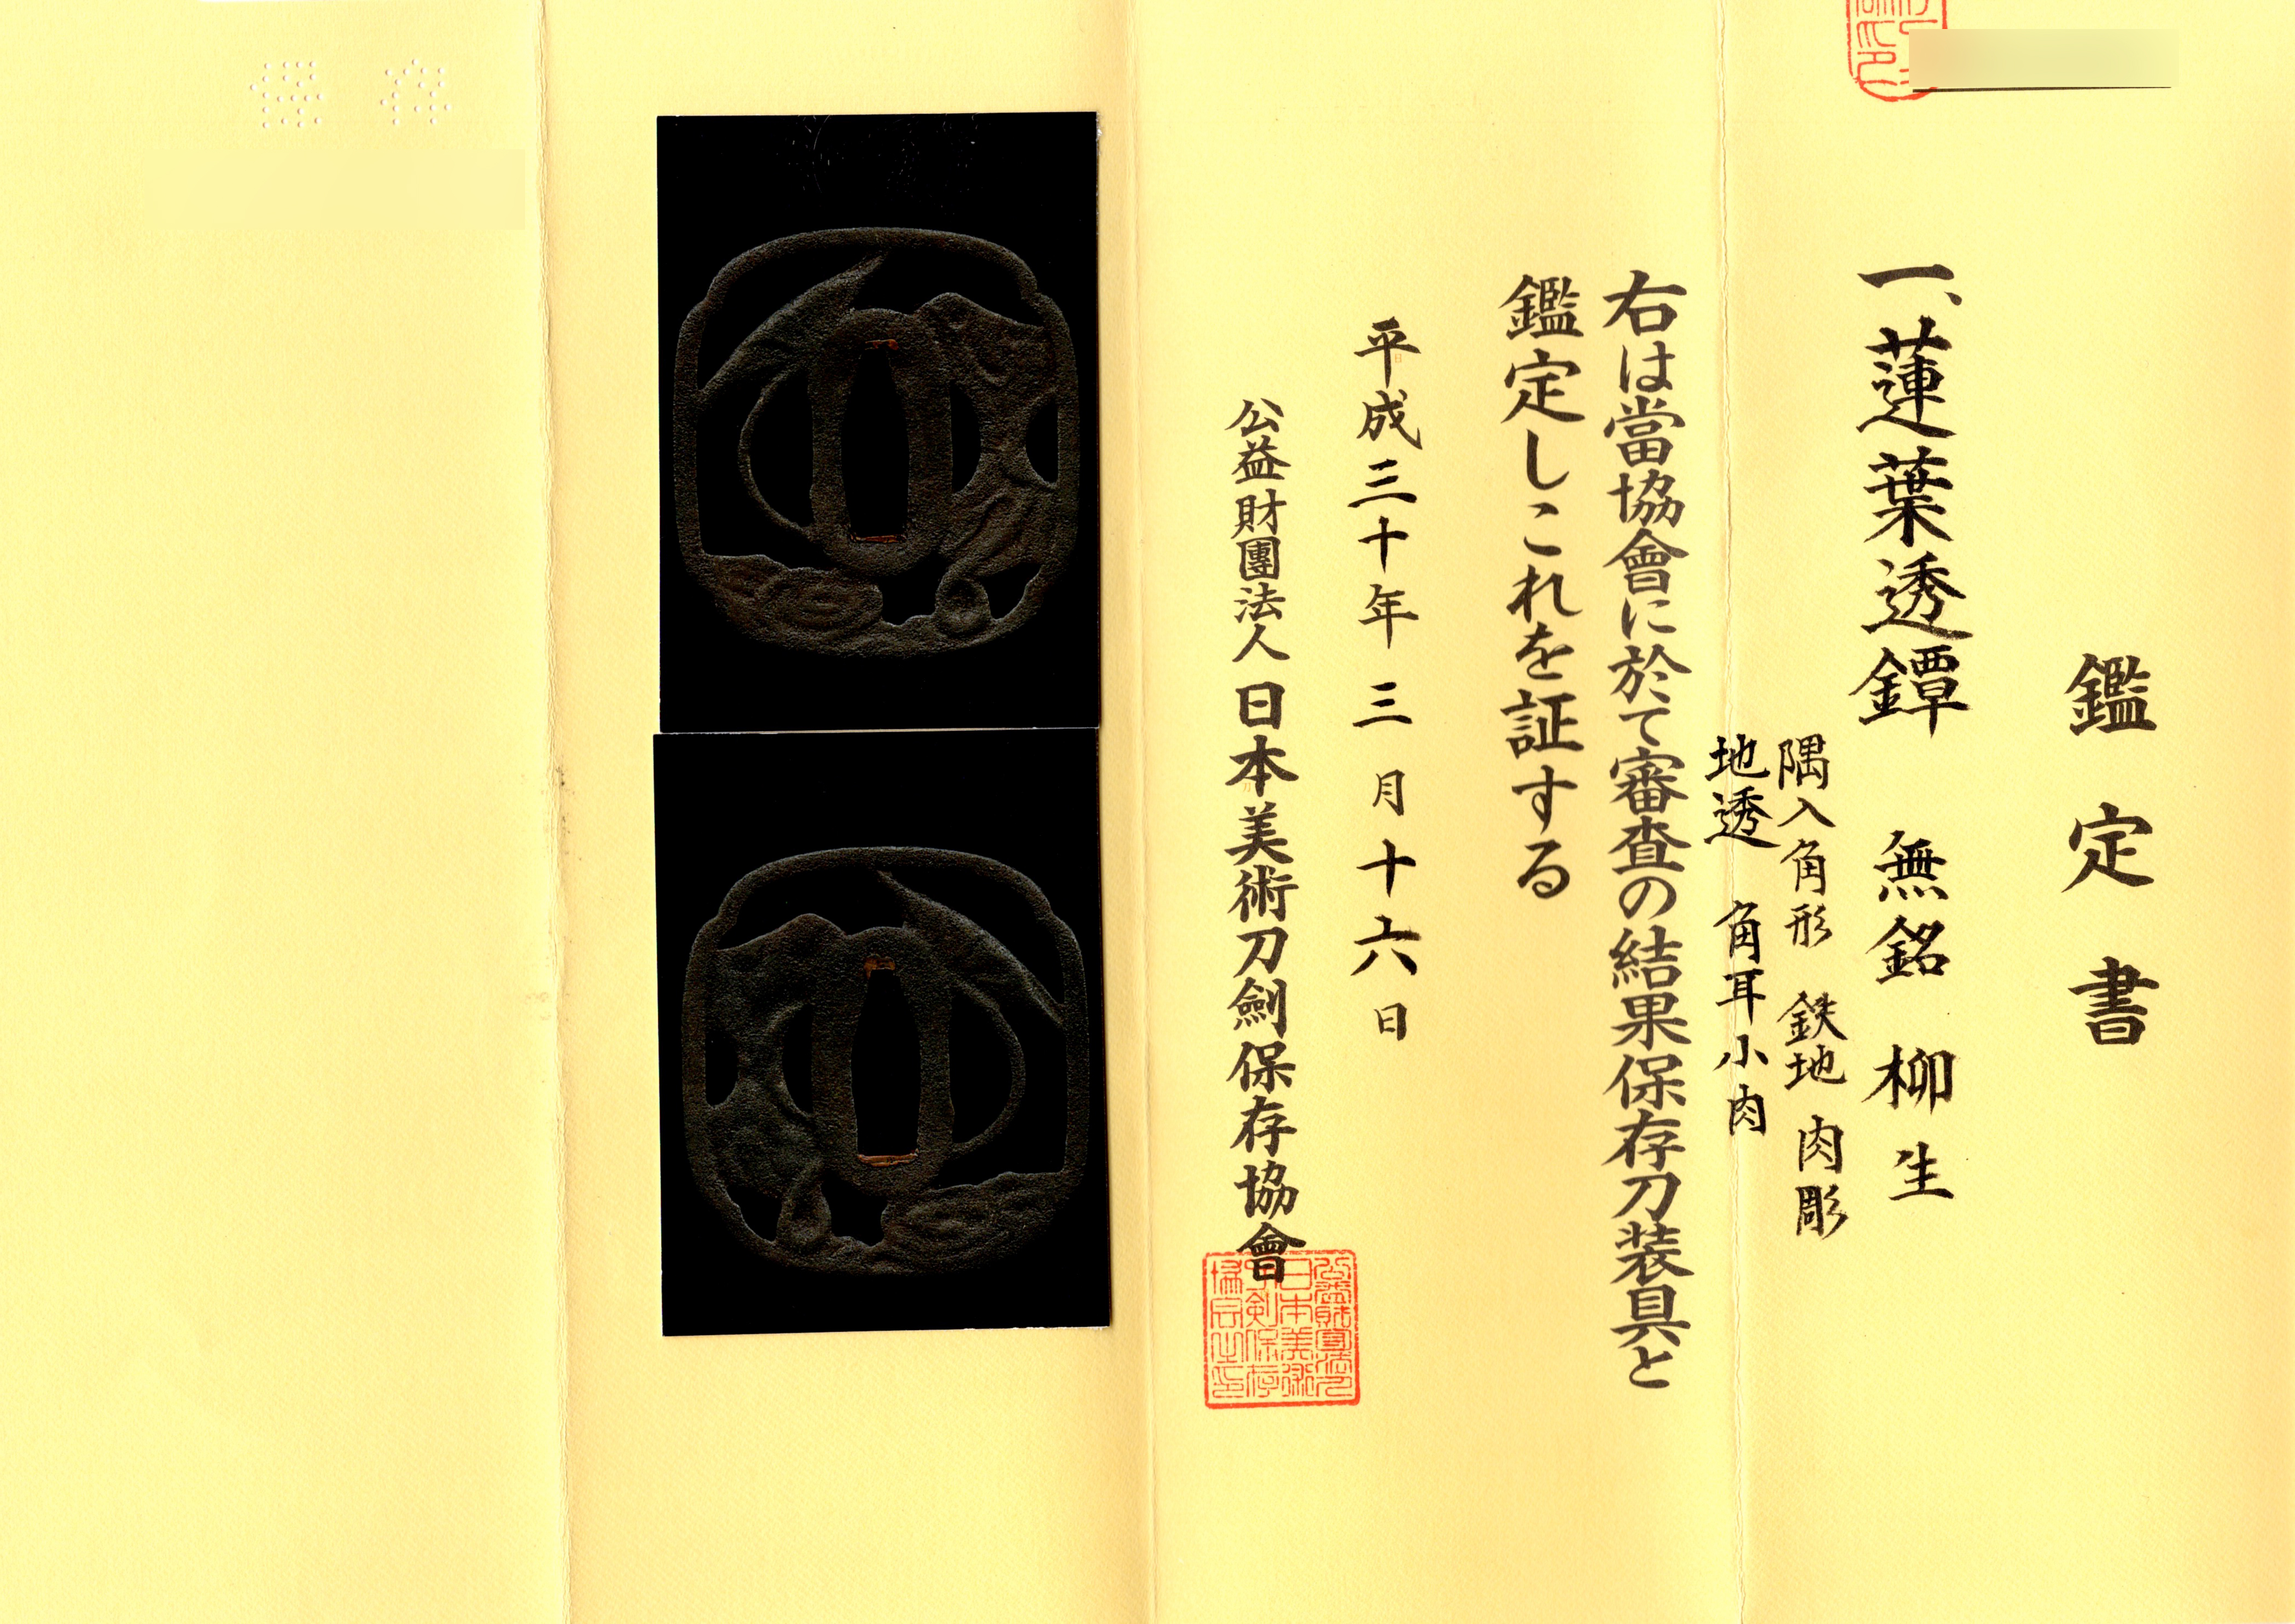 鑑定書
一、蓮葉透鐔 無銘 柳生
隅入角形 鉄地 肉彫
地透 角耳小肉
右は當協會に於て審査の結果保存刀装具と
鑑定しこれを証する
平成三十年三月十六日
公益財團法人 日本美術刀劍保存協會
保存